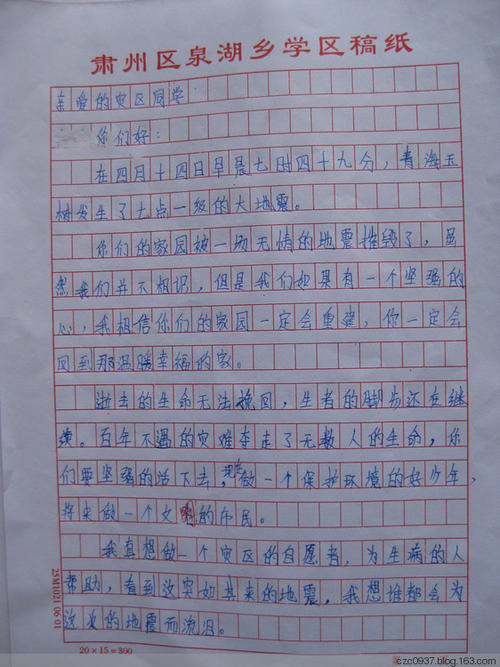 肃州区泉湖乡学区稿纸
亲爱的灾区同学
你们好：
在四月十四日早晨七时四十九分，青海玉
树发生了七点一级的大地震。
你们的家园被一场无情的地震摧毁了，虽
然我们并不相识，但是我们如果有一个坚强的
心，我相信你们的家园一定会重建，你一定会
回到那温暖幸福的家。
逝去的生命无法挽回，生者的脚步还在继
续。百年不遇的灾难夺走了无数人的生命，你
们要坚强的活下去，现在做一个保护环境的好少年，
将来做一个文明的市民。
我真想做一个灾区的自愿者，为生病的人
帮助，看到这突如其来的地震，我想谁都会为
这次的地震而流泪。
20×15=300
czc0937.blog.163.com